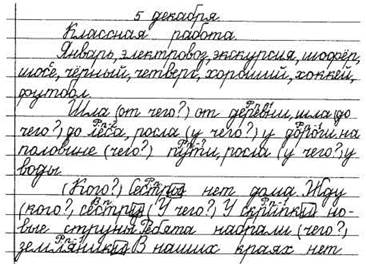 5 декабря.
Классная работа.
Январь, электровоз, экскурсия, шофёр,
шоссе, чёрный, четверг, хороший, хоккей,
футбол.
Шла (от чего?) от деревни, шла (до
чего?) до леса, росла (у чего?) у дороги, на
половине (чего?) пути, росла (у чего?) у
воды.
(Кого?) Сестры нет дома. Жду
(кого?) сестру. (У чего?) У скрипки но-
вые струны. Ребята набрали (чего?)
земляники. В наших краях нет